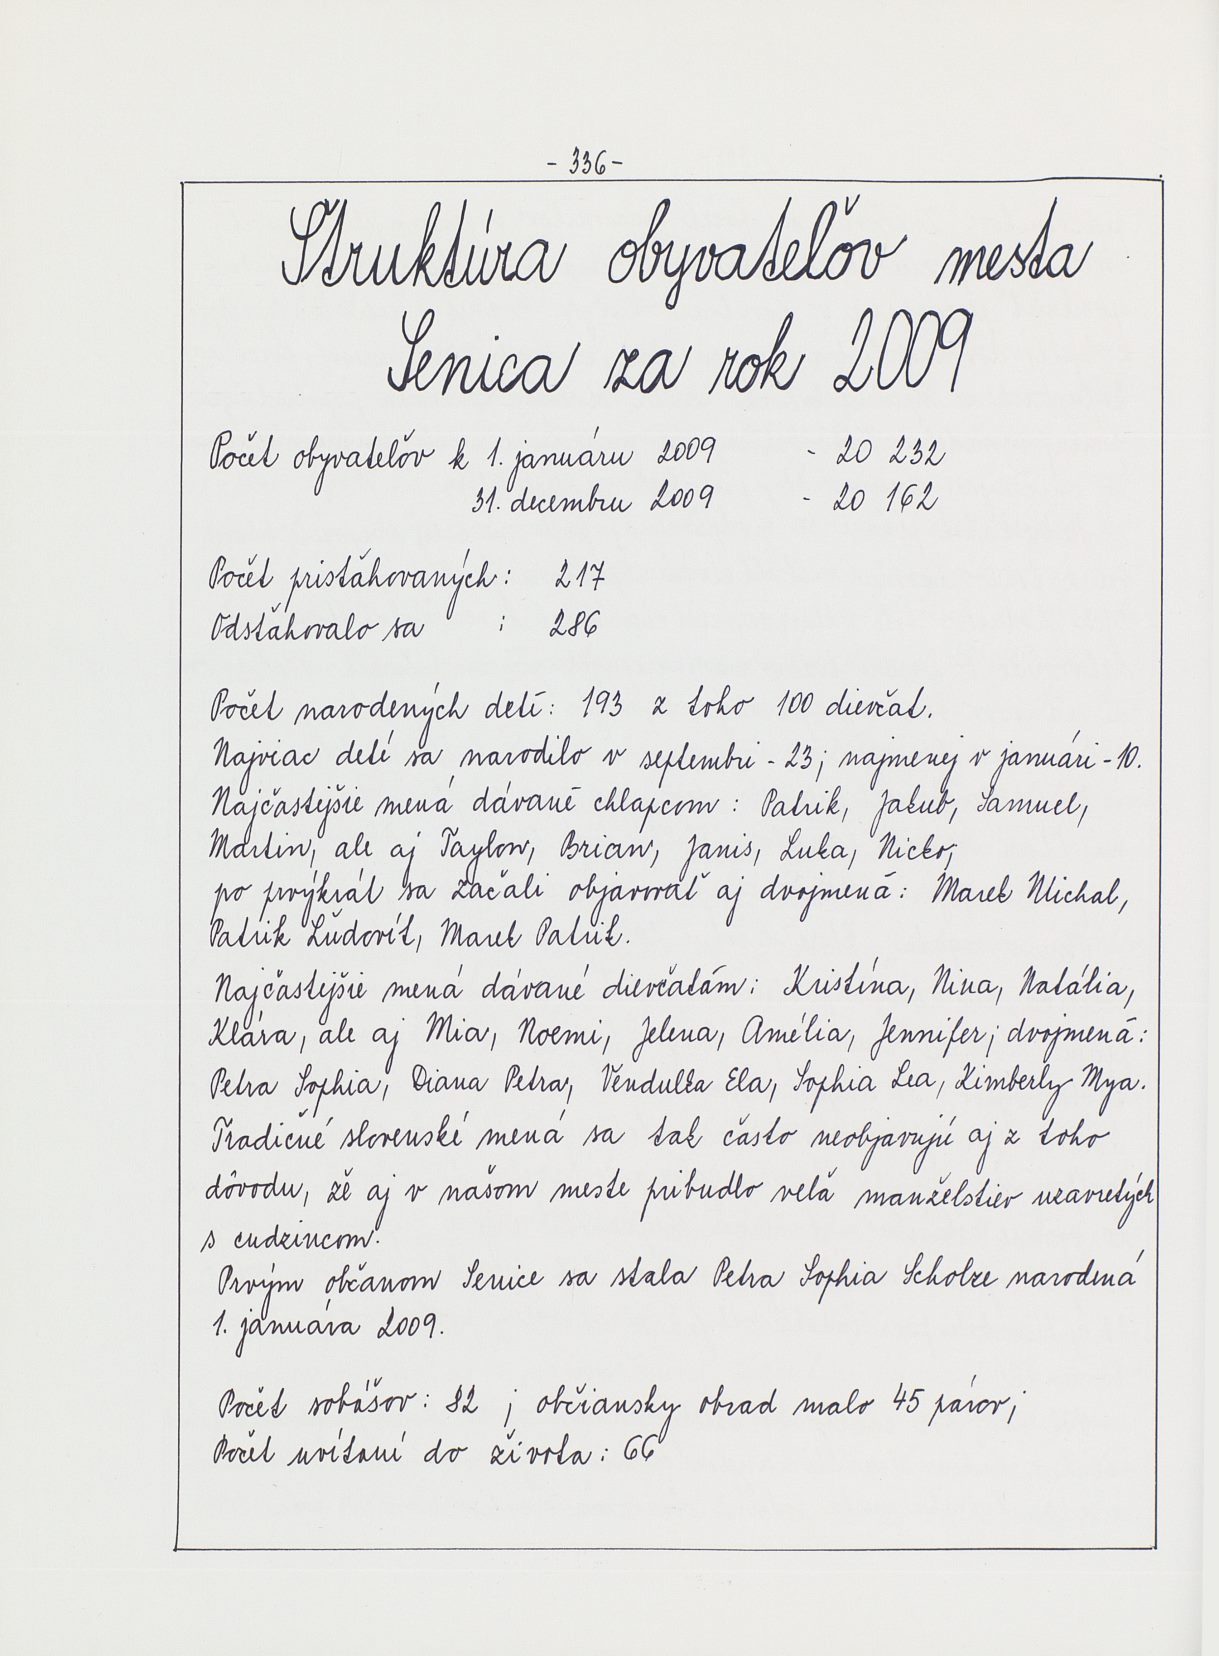 - 336 -
Štruktúra obyvateľov mesta
Senica za rok 2009
Počet obyvateľov k 1. januáru 2009 - 20 232
31. decembru 2009 - 20 162
Počet pristáhovaných: 217
Odsťahovalo sa : 286
Počet narodených detí: 193 z toho 100 dievčat.
Najviac detí sa narodilo v septembri - 23; najmenej v januári - 10.
Najčastejšie mená dávané chlapcom: Patrik, Jakub, Samuel,
Martin, ale aj Taylon, Brian, Janis, Luka, Nicko;
po prvýkrát sa začali objavovať aj dvojmená: Marek Michal,
Patrik Ľudovít, Marek Patrik.
Najčastejšie mená dávané dievčatám: Kristína, Nina, Natália,
Klára, ale aj Mia, Noemi, Jelena, Amélia, Jennifer; dvojmená:
Petra Sophia, Diana Petra, Vendulka Ela, Sophia Lea, Kimberly Mya.
Tradičné slovenské mená sa tak často neobjavujú aj z toho
dôvodu, že aj v našom meste pribudlo veľa manželstiev uzavretých
s cudzincom.
Prvým občanom Senice sa stala Petra Sophia Scholze narodená
1. januára 2009.
Počet sobášov: 82 ; občiansky obrad malo 45 párov;
Počet uvítaní do života: 66